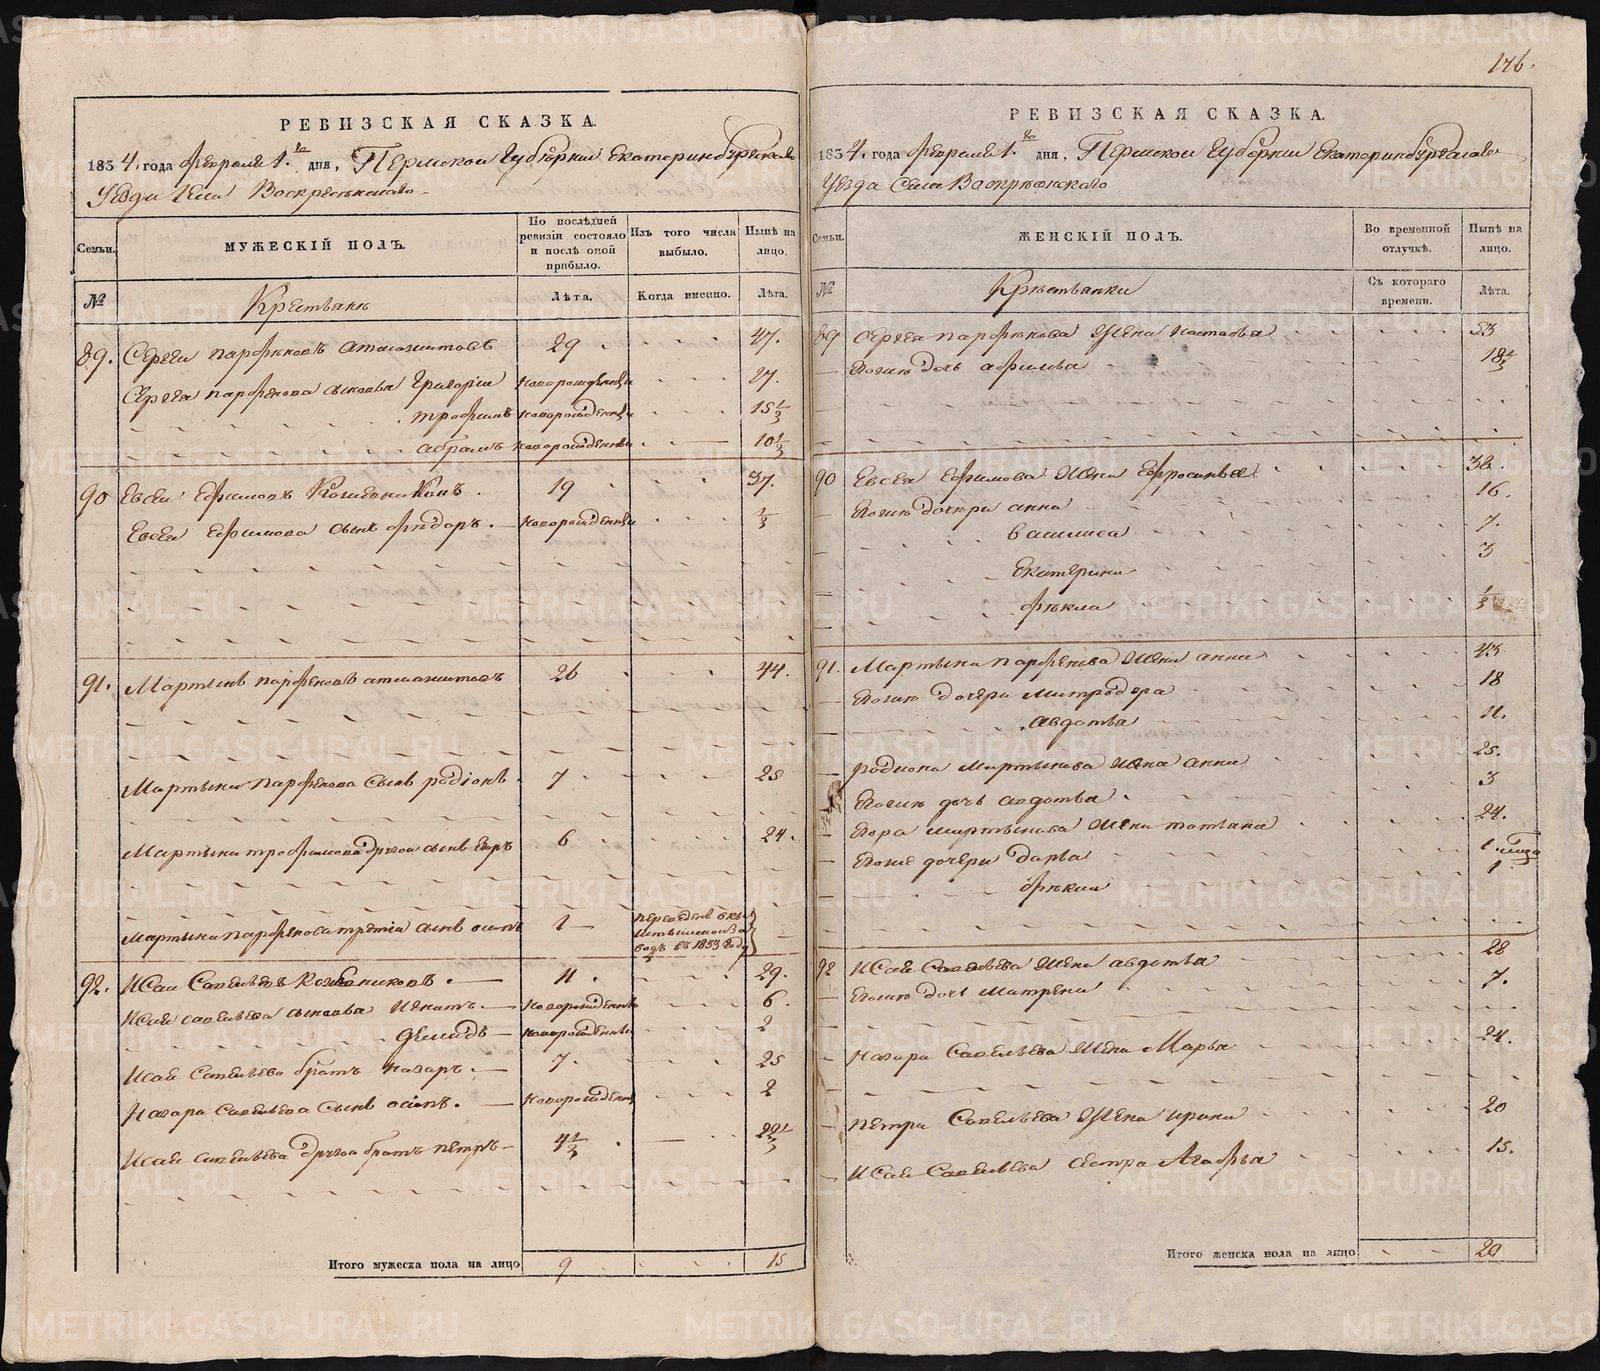 176.
РЕВИЗСКАЯ СКАЗКА.
1854. года февраля 1.го дня, Пермской Губернии Екатеринбургскаго
Уезда Села Воскресенскаго
Семьи. МУЖЕСКІЙ ПОЛЪ. По послѣдней ревизіи состояло и послѣ оной прибыло. Изъ того числа выбыло. Нынѣ на лицо.
№ Крестьяне Лѣта. Когда именно. Лѣта.
89. Сергей парфеновъ 29 47.
Сергея парфенова сыновья Григорій новорожденный 27.
трофимъ новорожденный 15 1/2
абрамъ новорожденный 10 1/2
90 Евсей Ефимовъ Кожевниковъ 19 37.
Евсея Ефимова сынъ фидоръ. новорожденный 1/2
91. Мартынъ парфеновъ 26 44.
Мартына парфенова сынъ родіонъ 7 25
Мартына трофимова другой сынъ Егоръ 6 24.
Мартына парфенова третій сынъ осипъ 1 переведенъ въ 1853 году
92. Исай Савельевъ Кожевниковъ 11. 29.
Исая савельева сыновья Игнатъ новорожденный 6.
демидъ новорожденный 2
Исая Савельева братъ назаръ. 7. 25
Назара Савельева сынъ осипъ. новорожденный 2
Исая савельева другой братъ петръ 4 1/2 22 1/2
Итого мужеска пола на лицо 9 15
РЕВИЗСКАЯ СКАЗКА.
1854. года февраля 1.го дня, Пермской Губернии Екатеринбургскаго
Уезда Села Воскресенскаго
Семьи. ЖЕНСКІЙ ПОЛЪ. Во временной отлучкѣ. Нынѣ на лицо.
№ Крестьянки Съ котораго времени. Лѣта.
89 Сергея парфенова жена настасья 53
Егоже дочь афимья 18 1/2
90 Евсея Ефимова жена Ефросинья 38.
Егоже дочери анна 16.
василиса 7.
Екатерина 3
фекла 1/2
91. Мартына парфенова жена анна 43
Егоже дочери митродора 18
авдотья 11.
родиона мартынова жена анна 25.
Егоже дочь авдотья. 3
Егора мартынова жена татьяна 24.
Егоже дочери дарья 1
фекла 1
92 Исая Савельева жена авдотья 28
Егоже дочь матрена 7.
Назара Савельева жена Марья 24.
петра Савельева жена ирина 20
Исая Савельева сестра Агафья 15.
Итого женска пола на лицо 20
METRIKI.GASO-URAL.RU